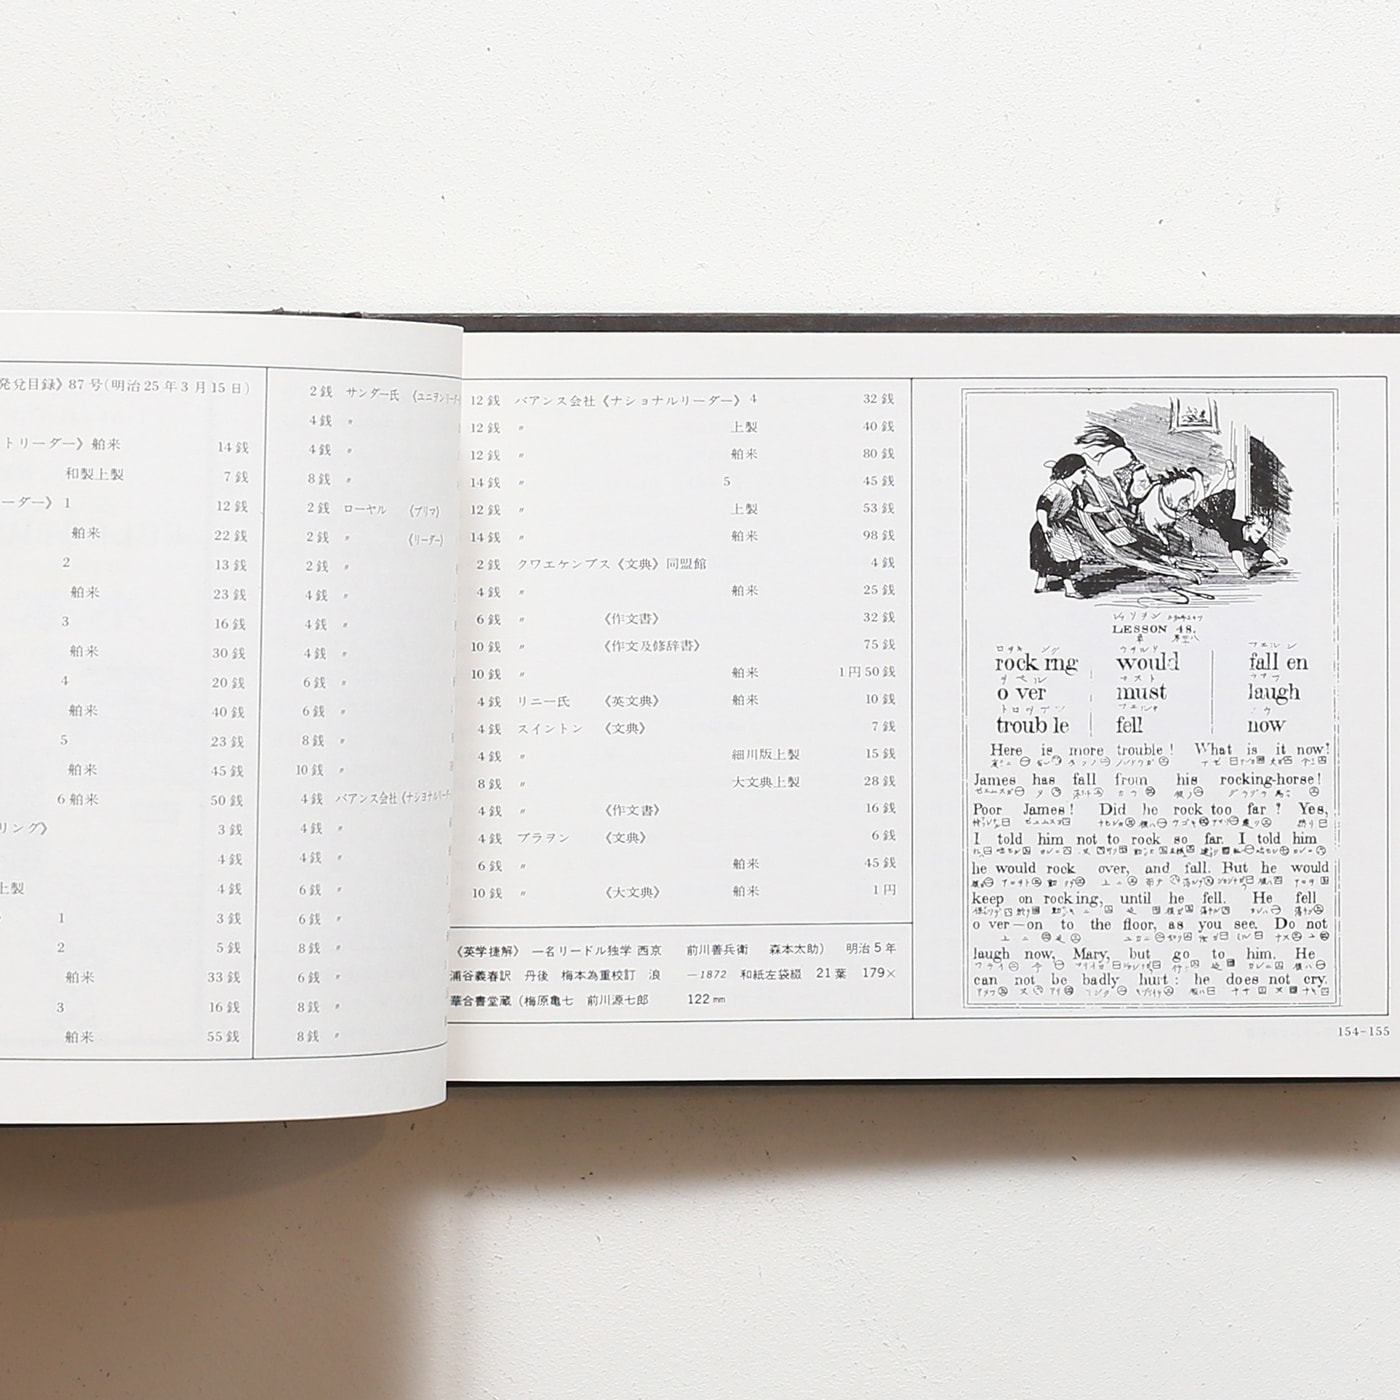 発兌目録》87号(明治25年3月15日)
トリーダー》舶来 14銭
和製上製 7銭
ーダー》1 12銭
舶来 22銭
2 13銭
舶来 23銭
3 16銭
舶来 30銭
4 20銭
舶来 40銭
5 23銭
舶来 45銭
6舶来 50銭
リング》 3銭
4銭
上製 4銭
1 3銭
2 5銭
舶来 33銭
3 16銭
舶来 55銭
2銭 サンダー氏
4銭 〃
4銭 〃
8銭 〃
2銭 ローヤル 《プリマ》
2銭 〃 《リーダー》
2銭 〃
4銭 〃
4銭 〃
4銭 〃
6銭 〃
6銭 〃
8銭 〃
10銭 〃
4銭 バアンス会社《ナショナルリーダー
4銭 〃
4銭 〃
6銭 〃
6銭 〃
8銭 〃
6銭 〃
8銭 〃
8銭 〃
12銭 バアンス会社《ナショナルリーダー》4 32銭
12銭 〃 上製 40銭
12銭 〃 舶来 80銭
14銭 〃 5 45銭
12銭 〃 上製 53銭
14銭 〃 舶来 98銭
2銭 クワエケンブス《文典》同盟館 4銭
4銭 〃 舶来 25銭
6銭 〃 《作文書》 32銭
10銭 〃 《作文及修辞書》 75銭
10銭 〃 舶来 1円50銭
4銭 リニー氏 《英文典》 舶来 10銭
4銭 スイントン 《文典》 7銭
4銭 〃 細川版上製 15銭
8銭 〃 大文典上製 28銭
4銭 〃 《作文書》 16銭
4銭 ブラヲン 《文典》 6銭
6銭 〃 舶来 45銭
10銭 〃 《大文典》 舶来 1円
《英学捷解》 一名リードル独学 西京
浦谷義春訳 丹後 梅本為重校訂 浪
華合書堂蔵(梅原亀七 前川源七郎
前川善兵衛 森本太助) 明治5年
—1872 和紙左袋綴 21葉 179×
122mm
LESSON 48.
rock ing would fall en
o ver must laugh
troub le fell now
Here is more trouble! What is it now!
James has fall from his rocking-horse!
Poor James! Did he rock too far? Yes,
I told him not to rock so far. I told him
he would rock over, and fall. But he would
keep on rocking, until he fell. He fell
o ver—on to the floor, as you see. Do not
laugh now, Mary, but go to him. He
can not be badly hurt: he does not cry.
154-155